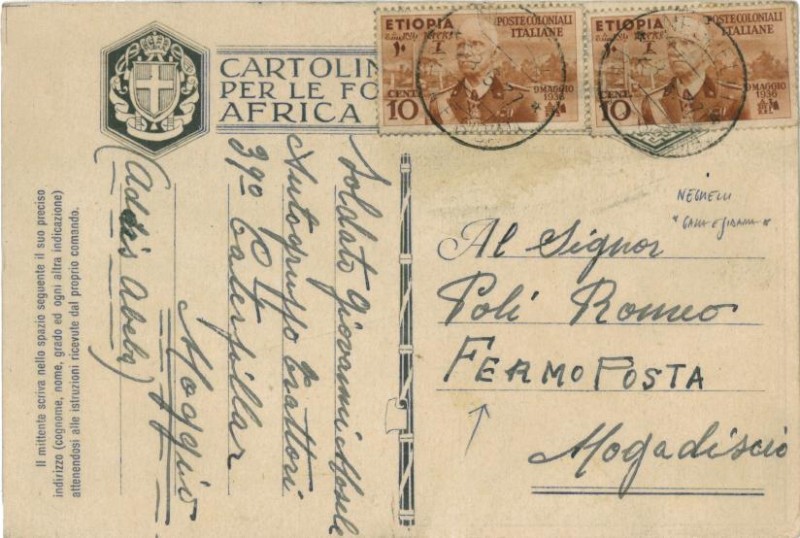 CARTOLIN
PER LE FO
AFRICA
ETIOPIA
POSTE COLONIALI
ITALIANE
9 MAGGIO
1936
CENT.
10
ETIOPIA
POSTE COLONIALI
ITALIANE
9 MAGGIO
1936
CENT.
10
Il mittente scriva nello spazio seguente il suo preciso
indirizzo (cognome, nome, grado ed ogni altra indicazione)
attenendosi alle istruzioni ricevute dal proprio comando.
Soldato Giovanni Mosele
Autogruppo Trattori
39º Caterpillar
Moggio
(Addis Abeba)
NEGHELLI
Al Signor
Poli Romeo
FERMO POSTA
Mogadiscio